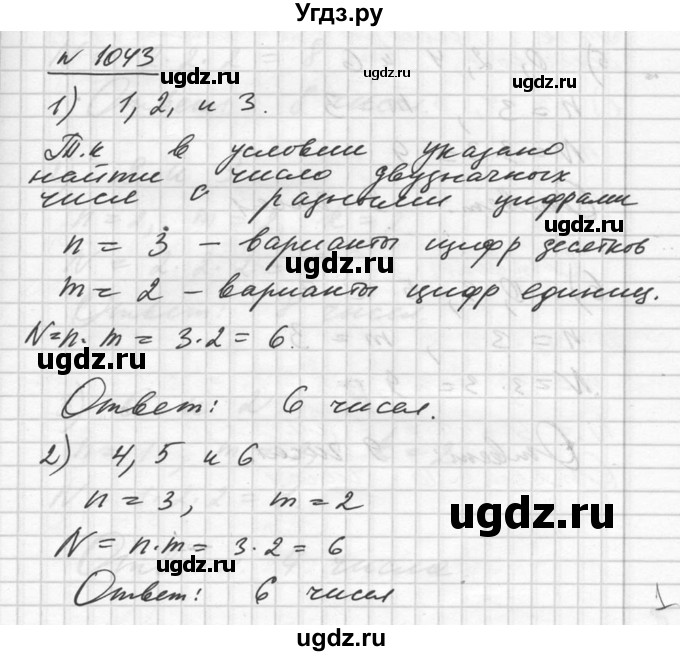 Угдз.ру
№ 1043
ugdz.ru
ugdz.ru
1) 1, 2, и 3.
Т.к в условии указано
найти число двузначных
чисел с разными цифрами
ugdz.ru
n = 3 – варианты цифр десятков
ugdz.ru
m = 2 – варианты цифр единиц.
N = n · m = 3 · 2 = 6.
ugdz.ru
ugdz.ru
Ответ: 6 чисел.
2) 4, 5 и 6
n = 3, m = 2
ugdz.ru
N = n · m = 3 · 2 = 6
ugdz.ru
Ответ: 6 чисел
1
ugdz.ru